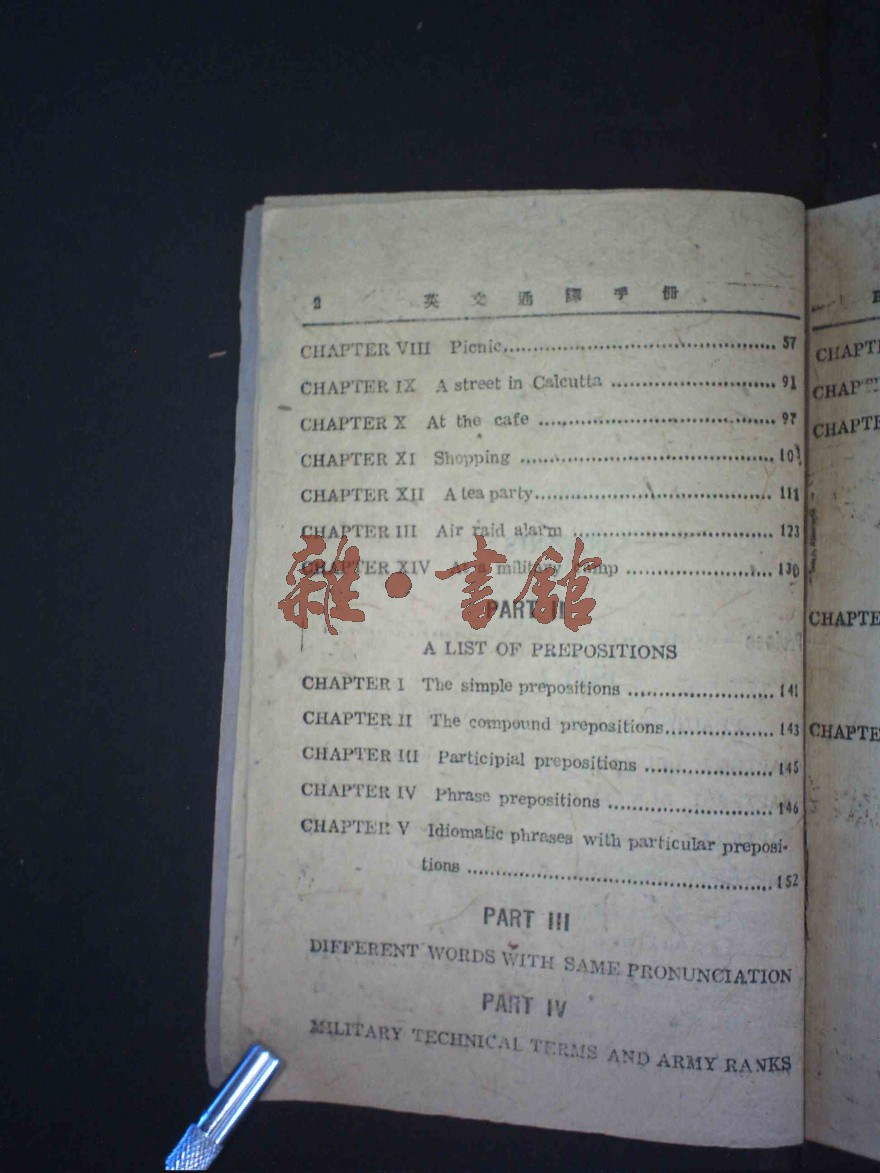 2 英文通譯手冊
CHAPTER VIII Picnic 57
CHAPTER IX A street in Calcutta 91
CHAPTER X At the cafe 97
CHAPTER XI Shopping
CHAPTER XII A tea party 111
CHAPTER III Air raid alarm 123
CHAPTER XIV At a military camp 130
雜·書館
PART II
A LIST OF PREPOSITIONS
CHAPTER I The simple prepositions 141
CHAPTER II The compound prepositions 143
CHAPTER III Participial prepositions 145
CHAPTER IV Phrase prepositions 146
CHAPTER V Idiomatic phrases with particular preposi-
tions 152
PART III
DIFFERENT WORDS WITH SAME PRONUNCIATION
PART IV
MILITARY TECHNICAL TERMS AND ARMY RANKS